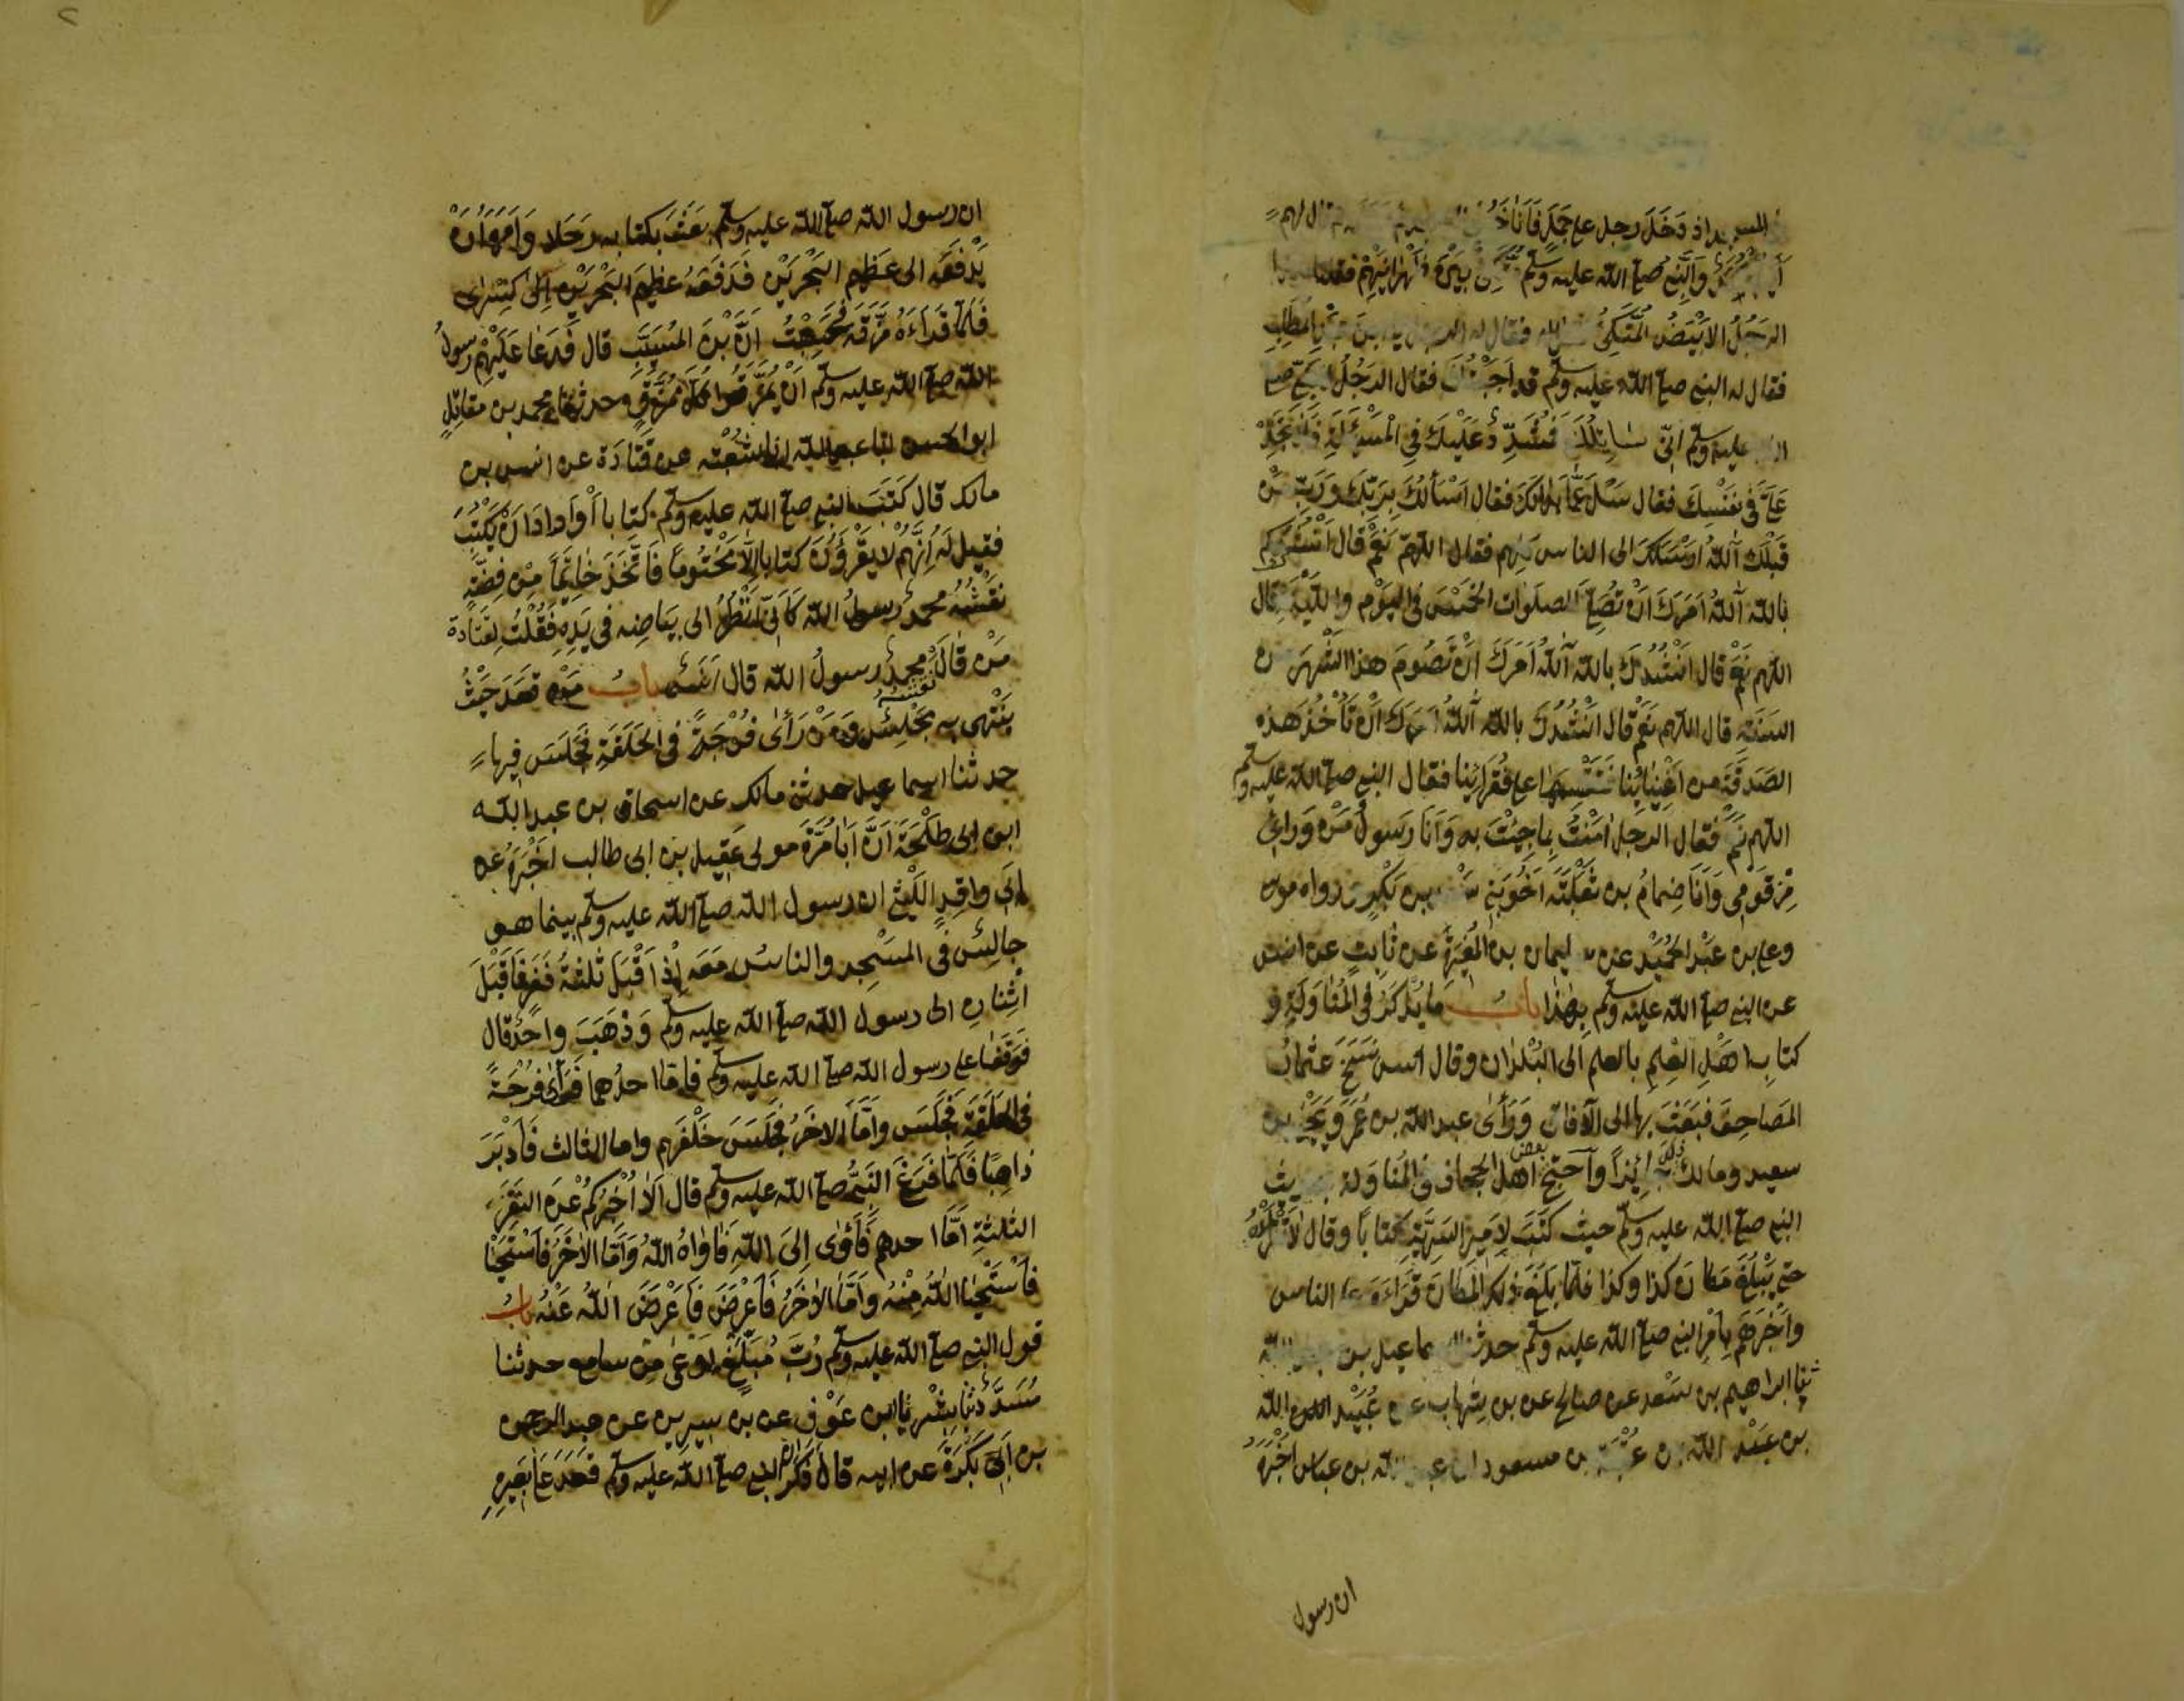 المسجد اذ دَخَلَ رجل على جَمَلٍ فَاَنَاخَهُ ثم قال لهم
اَيُّكُمْ محمدٌ وَالنَّبِيُّ صلى الله عليه وسلم مُتَّكِئٌ بَيْنَ ظَهْرَانَيْهِمْ فقلنا هذا
الرَّجُلُ الاَبْيَضُ المُتَّكِئُ فقال له الرجل يا ابنَ عبدِ المُطَّلِبِ
فقال له النبي صلى الله عليه وسلم قد اَجَبْتُكَ فقال الرَجُلُ للنبي صلى
الله عليه وسلم اِنّى سَائِلُكَ فَمُشَدِّدٌ عَلَيْكَ فِي الْمَسْئَلَةِ فَلَا تَجِدْ
عَلَىَّ فى نفْسِكَ فقال سَلْ عَمَّا بَدَا لَكَ فقال اَسْأَلُكَ بِرَبِّكَ وَرَبِّ مَنْ
قَبْلَكَ آللّهُ اَرْسَلَكَ الى الناس كلهم فقال اللهمّ نَعَمْ قال اَنْشُدُكَ
بالله آللّهُ اَمَرَكَ اَنْ تُصَلِّىَ الصلَوَات الخَمْسَ فى اليَوْمِ والليْلَةِ قال
اللهم نَعَمْ قال اَنْشُدُكَ بالله آللّهُ اَمَرَكَ اَنْ تَصُومَ هذا الشَّهْرَ من
السَنَةِ قال اللهم نَعَمْ قال اَنْشُدُكَ بالله آللّهُ اَمَرَكَ اَنْ تَأْخُذَ هَذه
الصَدَقَةَ من اَغْنِيَائِنا فَتَقْسِمَهَا على فُقَرَائِنا فقال النبى صلى الله عليه وسلم
اللهم نَعَمْ فقال الرجلُ اٰمَنْتُ بِمَا جِئْتَ به وَاَنَا رَسُولُ مَنْ وَرائى
مِنْ قَوْمِى وَاَنَا ضِمَامُ بن ثَعْلَبَةَ اَخُو بَنِى سَعْدِ بن بَكْرٍ رواه موسى
وعلى بن عَبْدِ الحَمِيْدِ عن سليمان بن المُغِيْرَةِ عن ثَابِتٍ عن انس
عن النبى صلى الله عليه وسلم بِهٰذَا بابُ ما يُذْكَرُ فِى المُنَاوَلَةِ و
كتابِ اَهْلِ العِلْمِ بالعلم اِلَى البُلْدَانِ وقال انس نَسَخَ عثمانُ
المَصَاحِفَ فَبَعَثَ بها الى الآفاق وَرَأَى عبد الله بن عُمَرَ وَيَحْيَى بن
سعيد ومالك ذٰلِكَ جائِزاً وَاحْتَجَّ بعض اَهْلِ الحجاز فى المُنَاوَلة بحديث
النبى صلى الله عليه وسلم حيث كَتَبَ لِاَمِيرِ السَرِيَّةِ كتاباً وقال لاَ تَقْرَأْهُ
حتى تَبْلُغَ مَكَانَ كذا وكذا فلمّا بَلَغَ ذلك المَكَانَ قَرَاَهُ على الناس
وَاَخْبَرَهُمْ بِاَمْرِ النبى صلى الله عليه وسلم حدثنا اسماعيل بن عبد الله
ثنا ابراهيم بن سَعْد عن صالح عن بن شِهَابٍ عن عُبَيْدِ الله
بن عَبْدِ الله بن عُتْبَةَ بن مسعود ان عبد الله بن عباس اَخْبَرَهُ
ان رسول
ان رسول الله صلى الله عليه وسلم بَعَثَ بكتابه رَجَلا وَاَمَرَهُ اَنْ
يَدْفَعَه الى عَظِيمِ البَحْرَيْنِ فَدَفَعَهُ عظِيمُ البَحْرَيْنِ اِلَى كِسْرٰى
فَلَمَّا قَرَاَهُ مَزَّقَهُ فَحَسِبْتُ اَنَّ بْنَ المُسَيِّبِ قال فَدَعَا عَلَيْهِمْ رسولُ
الله صلى الله عليه وسلم اَنْ يُمَزَّقُوا كُلَّ مُمَزَّقٍ وحدثنا محمد بن مقاتِلٍ
ابو الحسن انا عبد الله انا شُعْبَه عن قَتَادَةَ عن انس بن
مالك قال كَتَبَ النبى صلى الله عليه وسلم كتِابا اَوْ اَرادَ اَنْ يَكْتُبَ
فقيل لَه اِنَّهُمْ لا يَقْرَؤُنَ كتابا اِلَّا مَخْتُومًا فَاتَّخَذَ خاتِمًا مِنْ فِضَّةٍ
نَقْشُهُ محمدٌ رسولُ الله كَاَنّى اَنْظُرُ الى بيَاضِه فى يَدِهِ فَقُلْتُ لِقَتَادة
مَنْ قَالَ نَقْشُهُ محمدٌ رسولُ الله قال اَنَسٌ بابُ مَنْ قَعَدَ حَيْثُ
يَنْتَهى به المجْلِسُ وَمَنْ رَأَى فُرْجَةً فى الحَلْقَةِ فجَلَسَ فِيها
حدثنا اسماعيل حدثنى مالك عن اسحاق بن عبد الله
ابن ابى طَلْحَةَ اَنَّ اَبَا مُرَّةَ مولى عَقِيلِ بن ابى طالب اَخْبَرَهُ عن
اَبى واقِدٍ اللَيْثى ان رسول الله صلى الله عليه وسلم بينما هو
جالِسٌ فى المَسْجِدِ والناسُ مَعَه اِذْ اَقْبَلَ ثَلٰثَةُ نَفَرٍ فَاَقْبَلَ
اثْنَانِ الى رسول الله صلى الله عليه وسلم وَذَهَبَ واحِدٌ قال
فوَقَفَا على رسول الله صلى الله عليه وسلم فاما احدُهما فَرَأَى فُرْجَةً
فى الحَلْقَةِ فَجَلَسَ وَاَمَّا الاٰخَرُ فجَلَسَ خَلْفَهم واما الثالث فَاَدْبَرَ
ذاهِبًا فَلَمَّا فَرَغَ النَبِىُّ صلى الله عليه وسلم قال اَلَا اُخْبِرُكُمْ عَنِ النَفَرِ
الثلٰثَةِ اَمَّا احدهم فَاَوٰى اِلَى اللهِ فَاٰوَاهُ اللّهُ وَاَمَّا الاٰخَرُ فَاسْتَحْيَا
فَاسْتَحْيَا اللهُ مِنْهُ وَاَمَّا الاٰخَرُ فَاَعْرَضَ فَاَعْرَضَ اللهُ عَنْهُ بابُ
قول النبى صلى الله عليه وسلم رُبَّ مُبَلَّغٍ اَوْعٰى مِنْ سامع حدثنا
مُسَدَّدٌ ثنا بِشْرٌ ثنا ابن عَوْنٍ عن بن سِيرين عن عبد الرحمن
بن اَبى بَكْرَةَ عن ابيه قال ذَكَرَ النبى صلى الله عليه وسلم قَعَدَ عَلَى بَعِيرِهِ